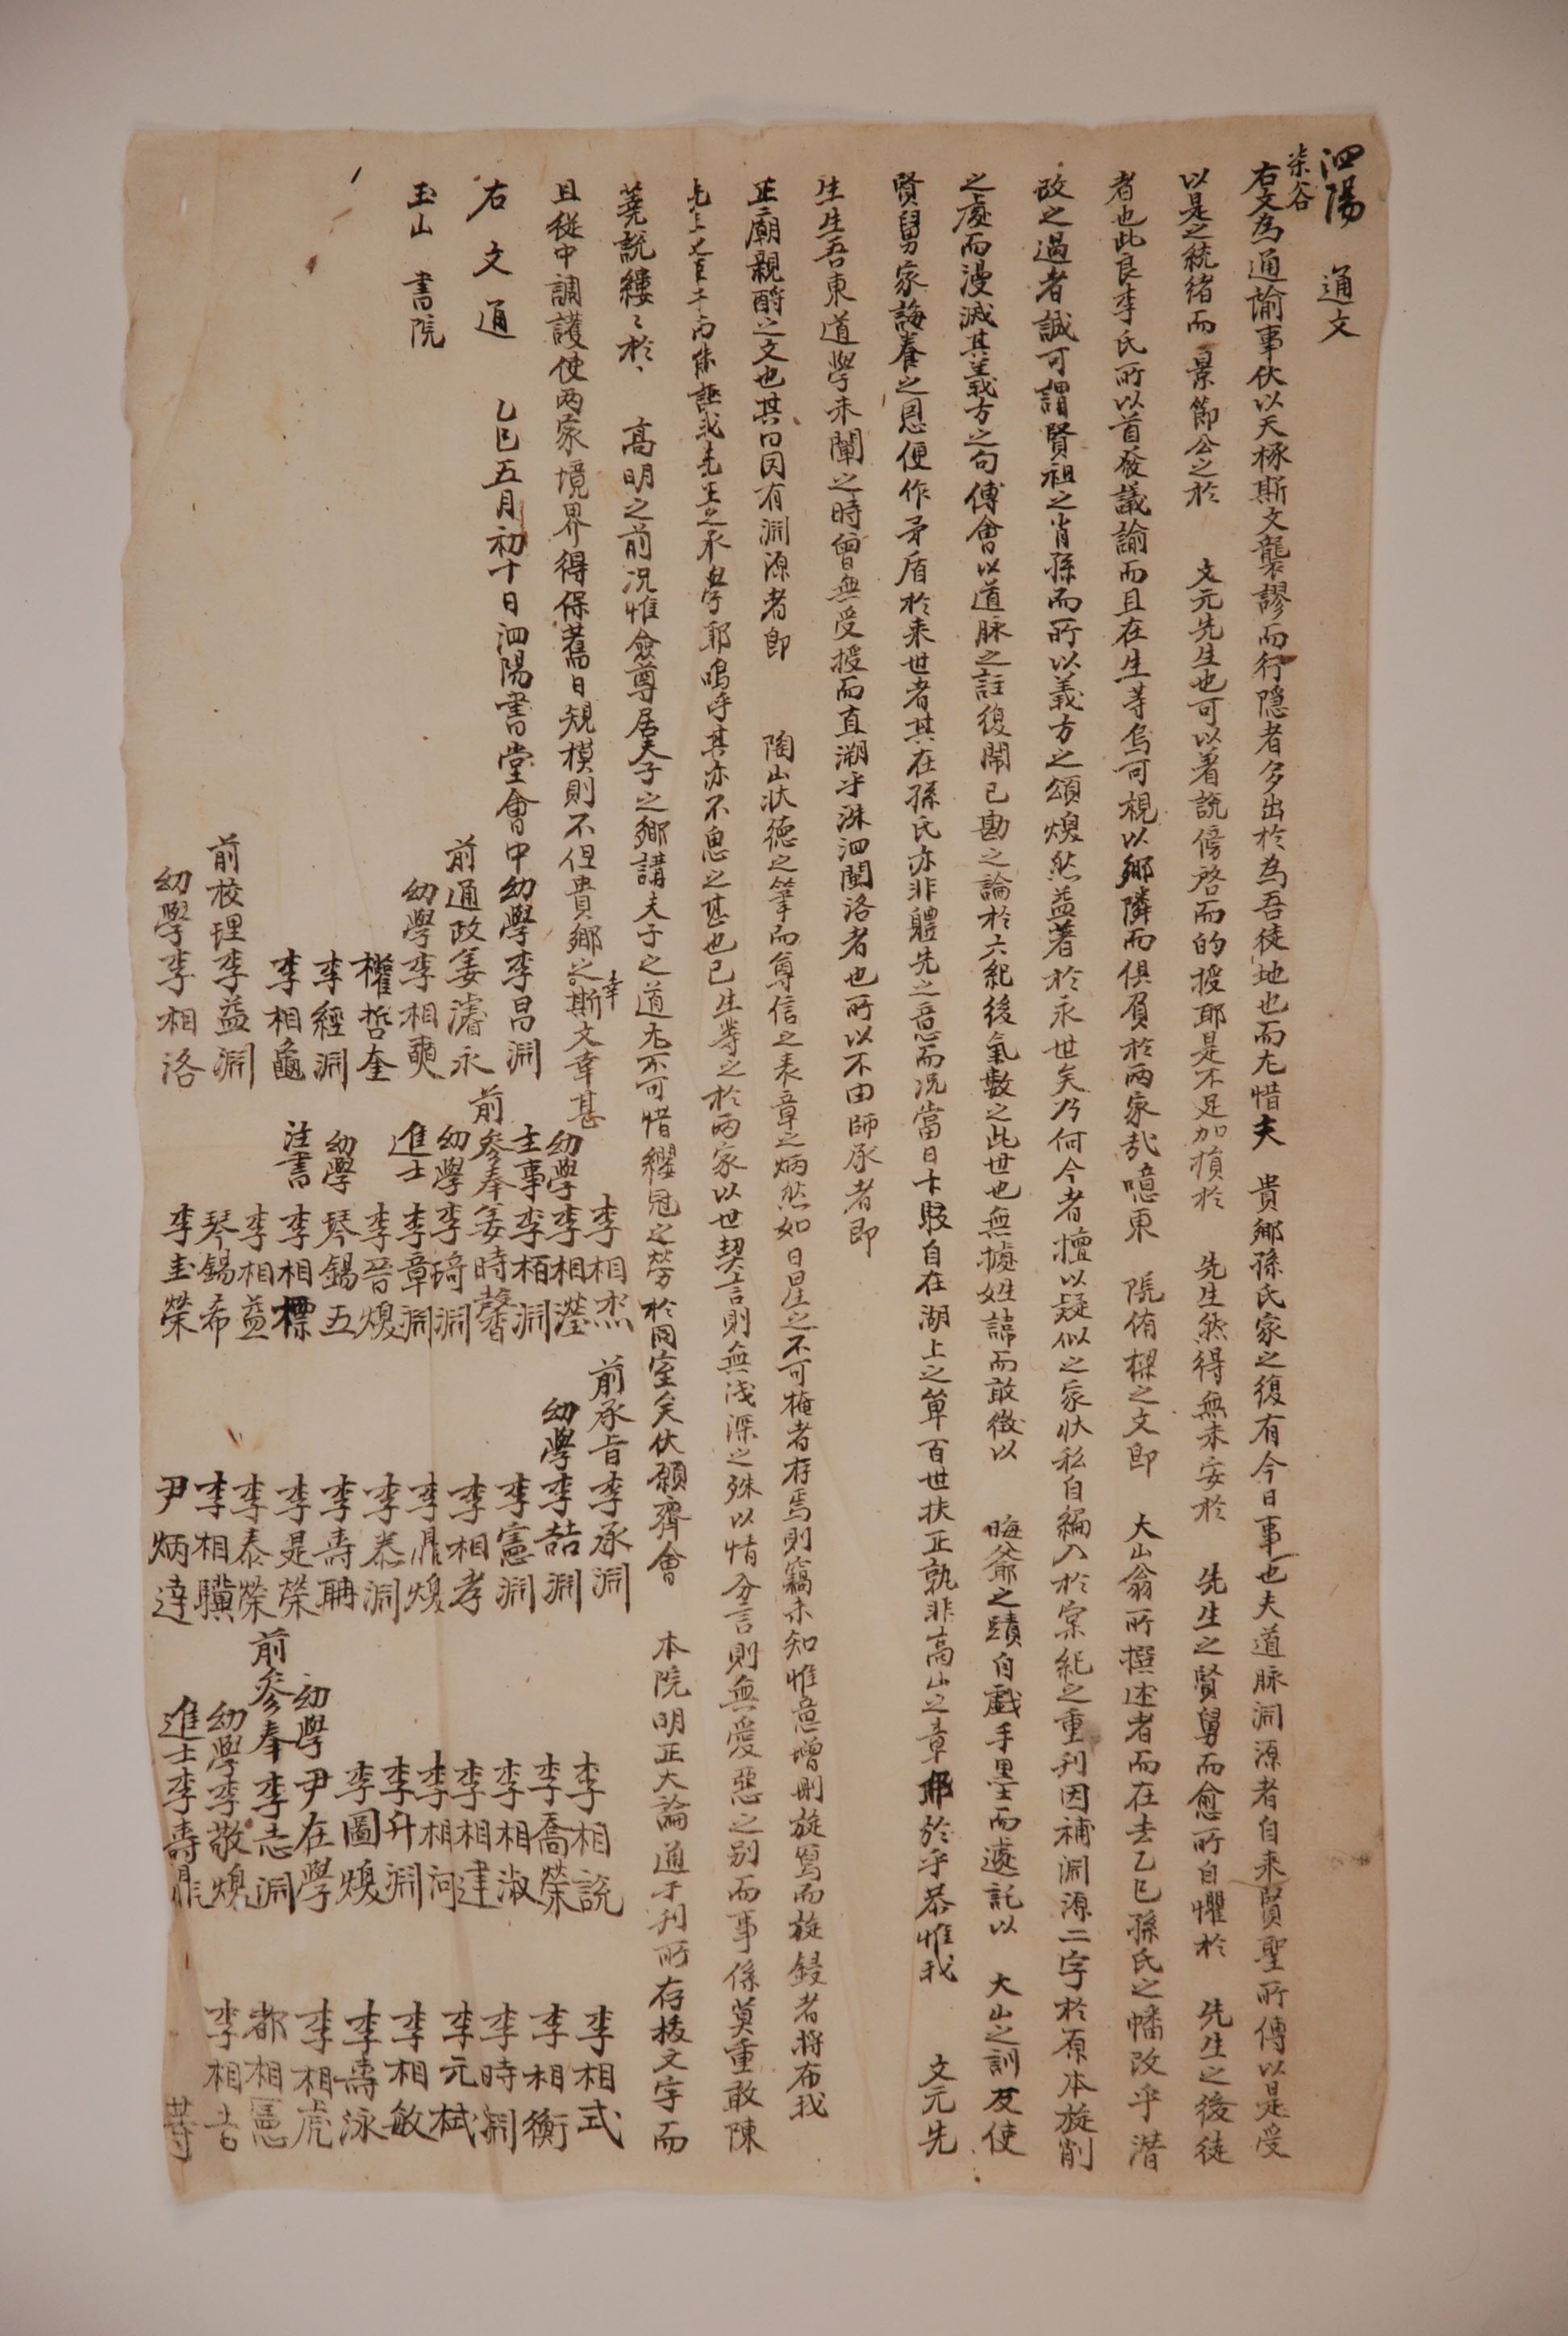 泗陽 通文
柒谷
右文為通諭事伏以天椓斯文襲謬而行隱者多出於為吾徒地也而尤惜夫 貴鄉孫氏家之復有今日事也夫道脉淵源者自来賢聖所傳以是受
以是之統緒而景節公之於 文元先生也可以著說傍啓而的授耶是不足加損於 先生然得無未安於 先生之賢舅而愈所自懼於 先生之後徒
者也此良李氏所以首發議論而且在生等烏可視以鄉隣而俱負於兩家哉噫東 院侑樑之文即 大山翁所撰述者而在去乙巳孫氏之幡改乎潜
改之過者誠可謂賢祖之肖孫而所以義方之頌煥然益著於永世矣乃何今者擅以疑似之家狀私自編入於宗紀之重刊因補淵源二字於原本旋削
之處而漫滅其義方之句傅會以道脉之註復閙已勘之論於六紀後氣數之此世也無據姓諱而敢徵以 晦爺之蹟自戲手墨而遽託以 大山之訓友使
賢舅家誨養之恩便作矛盾於来世者其在孫氏亦非軆先之意而况當日十駁自在湖上之篇百世扶正孰非高山之章耶於乎恭惟我 文元先
生生吾東道學未闡之時曾無受授而直溯乎洙泗閩洛者也所以不由師承者即
正廟親酹之文也其曰因有淵源者即 陶山狀德之筆而尊信之表章之炳然如日星之不可掩者存焉則竊未知惟意增刪旋寫而旋鋟者將布我
先王耆耉而俾誣我先生之承學耶嗚呼其亦不思之甚也已生等之於兩家以世契言則無淺深之殊以情分言則無愛惡之别而事係莫重敢陳
蕘說縷々於 高明之前况惟僉尊居夫子之鄉講夫子之道尤不可惜纓冠之勞於同室矣伏願齊會 本院明正大論通于刊所存拔文字而
且從中調護使兩家境界得保舊日規模則不但貴鄉之幸斯文幸甚
右文通
玉山 書院
乙巳五月初十日泗陽書堂會中幼學李昌淵
前通政姜濬永
幼學李相奭
權哲奎
李經淵
李相龜
前校理李益淵
幼學李相洛
李相杰
幼學李相瀅
主事李栢淵
前參奉姜時馨
幼學李琦淵
進士李章淵
李晉煥
幼學琴錫五
注書李相標
李相益
琴錫希
李圭榮
前承旨李承淵
幼學李喆淵
李憲淵
李相孝
李鼎煥
李泰淵
李壽聃
李是榮
李泰榮
李相驥
尹炳達
李相說
李喬榮
李相淑
李相建
李相河
李升淵
李圖煥
幼學尹在學
前參奉李志淵
幼學李敬煥
進士李壽鼎
李相式
李相衡
李時淵
李元栻
李相敏
李壽泳
李相虎
都相憲
李相吉
等